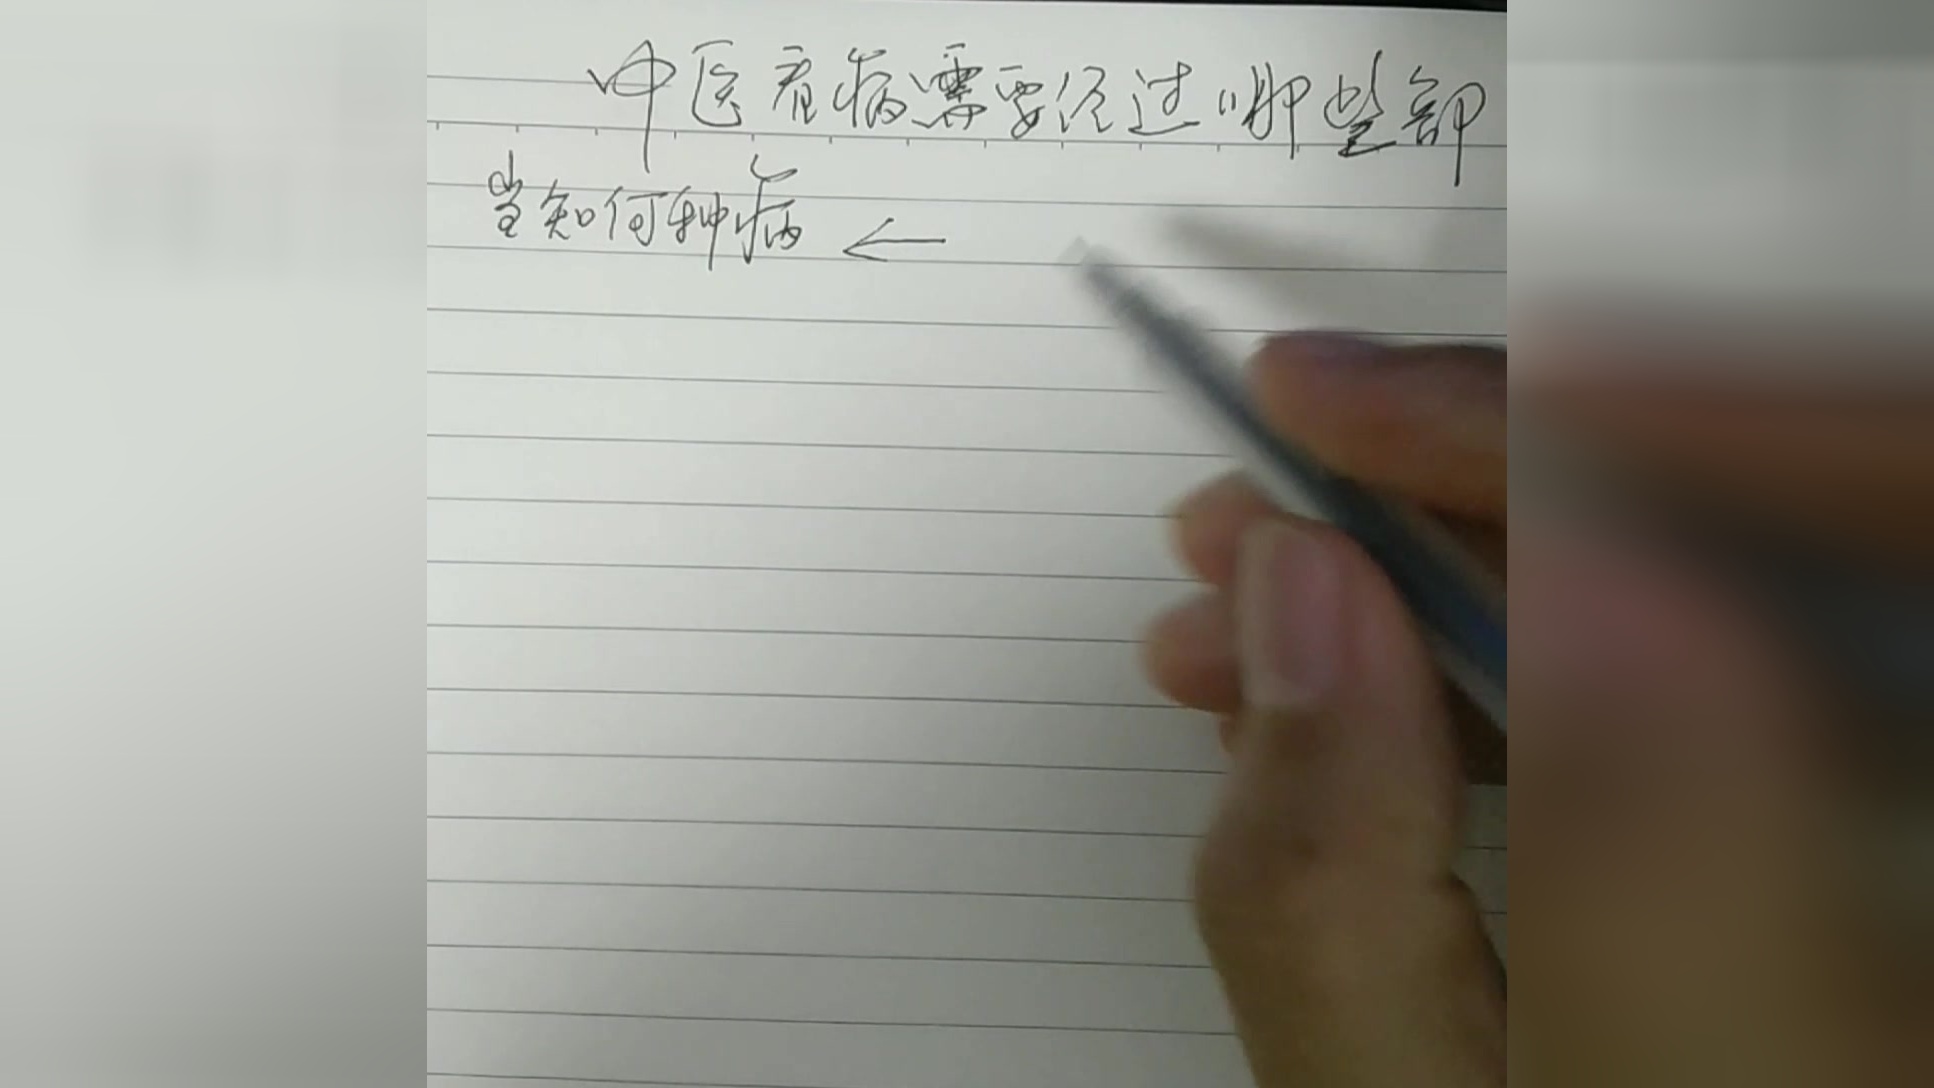 中医看病需要经过哪些部
当知何种病 ←